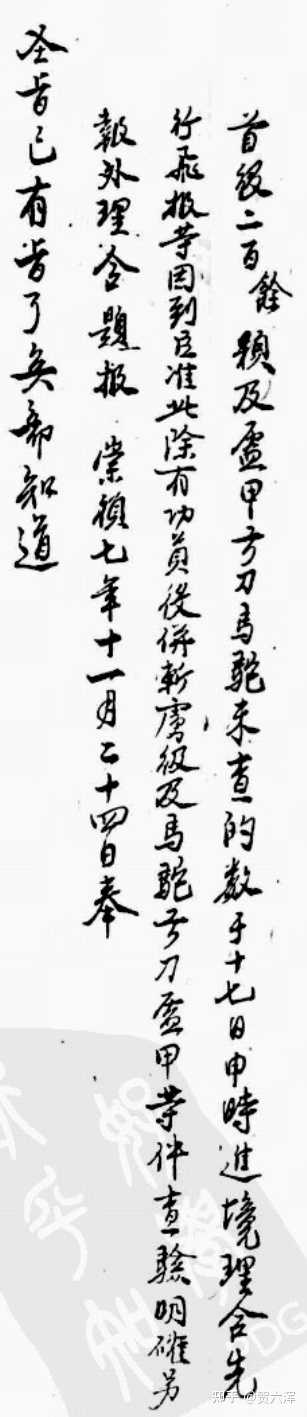 首级二百餘顆及盔甲弓刀馬駝未查的数于十七日申時進境理合先
行飛报等因到臣准此除有功員役併斬虜级及馬駝弓刀盔甲等件查驗明確另
報外理合題报 崇禎七年十一月二十四日奉
圣旨已有旨了兵部知道
知乎 @贺六浑